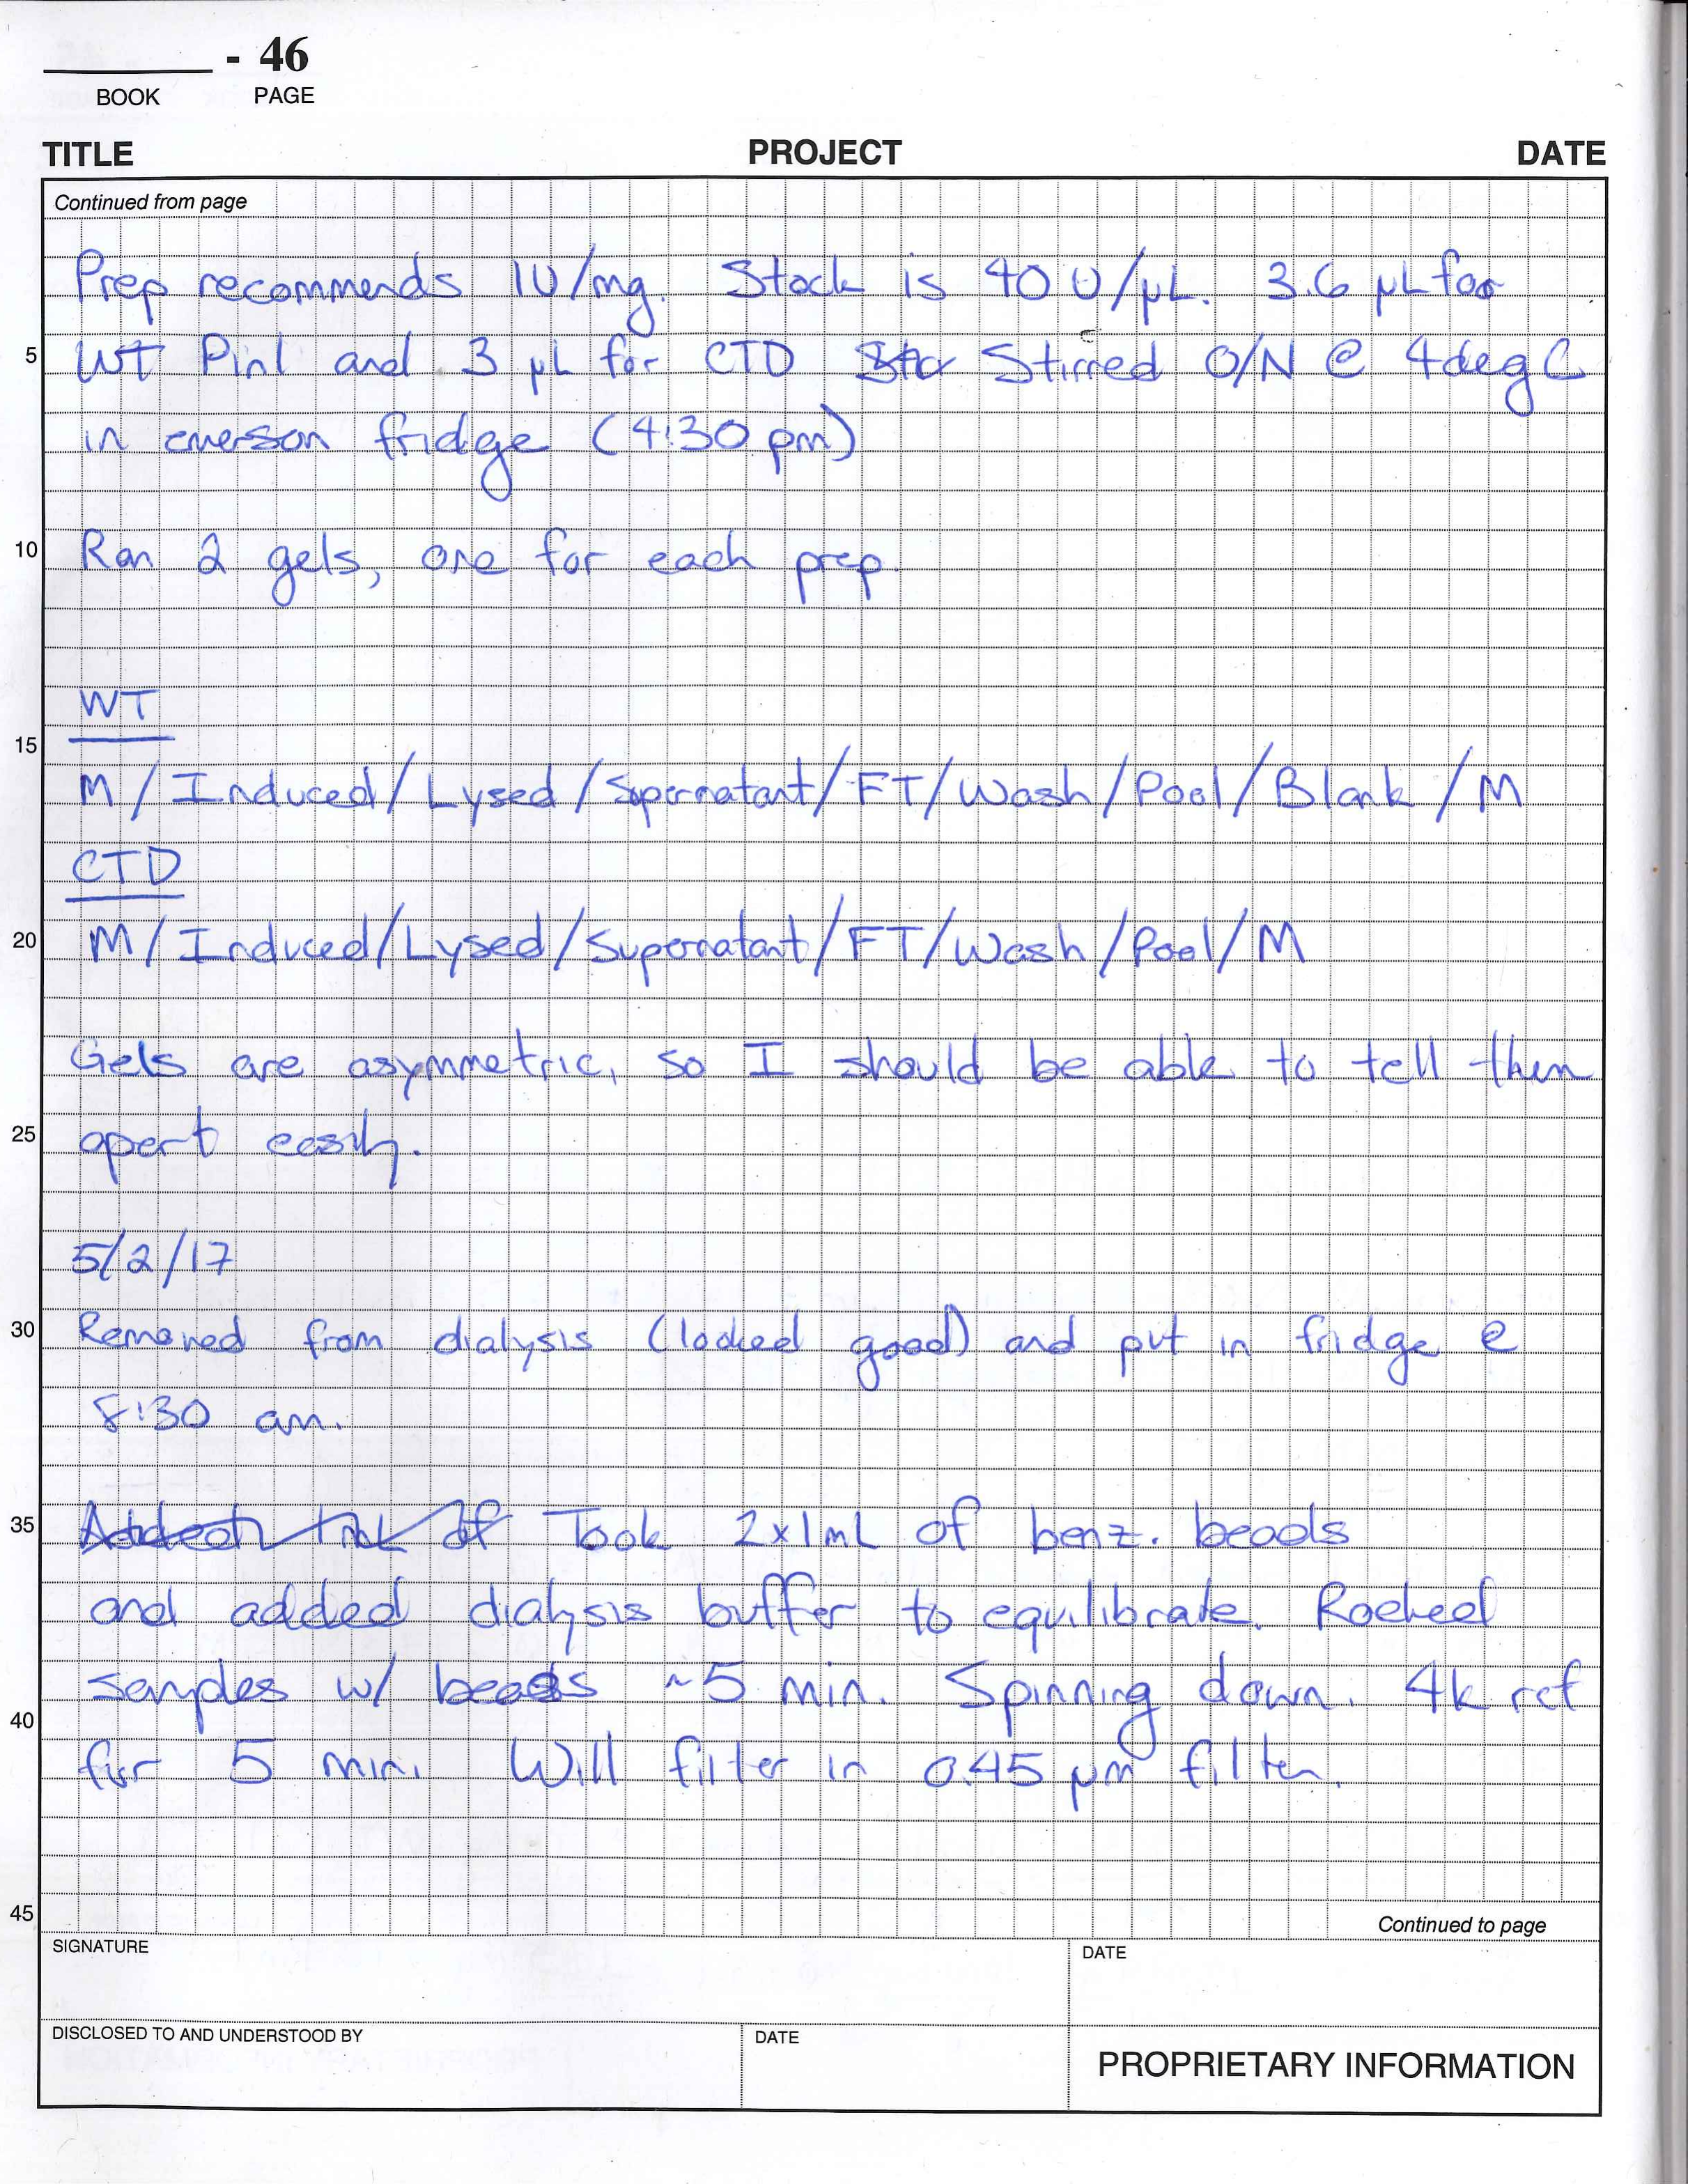 - 46
BOOK PAGE
TITLE PROJECT DATE
Continued from page
Prep recommends 1U/mg. Stock is 40 U/µL. 3.6 µL for
5 WT Pin1 and 3 µL for CTD Stirred O/N @ 4degC
in emerson fridge (4:30 pm)
10 Ran 2 gels, one for each prep.
WT
15
M/Induced/Lysed/Supernatant/FT/Wash/Pool/Blank/M
CTD
20 M/Induced/Lysed/Supernatant/FT/Wash/Pool/M
Gels are asymmetric, so I should be able to tell them
25 apart easily.
5/2/17
30 Removed from dialysis (looked good) and put in fridge @
8:30 am.
35 Added Took 2x1mL of benz. beads
and added dialysis buffer to equilibrate. Rocked
samples w/ beads ~5 min. Spinning down. 4k rcf
40
for 5 min. Will filter in 0.45 µm filter.
45
Continued to page
SIGNATURE DATE
DISCLOSED TO AND UNDERSTOOD BY DATE
PROPRIETARY INFORMATION